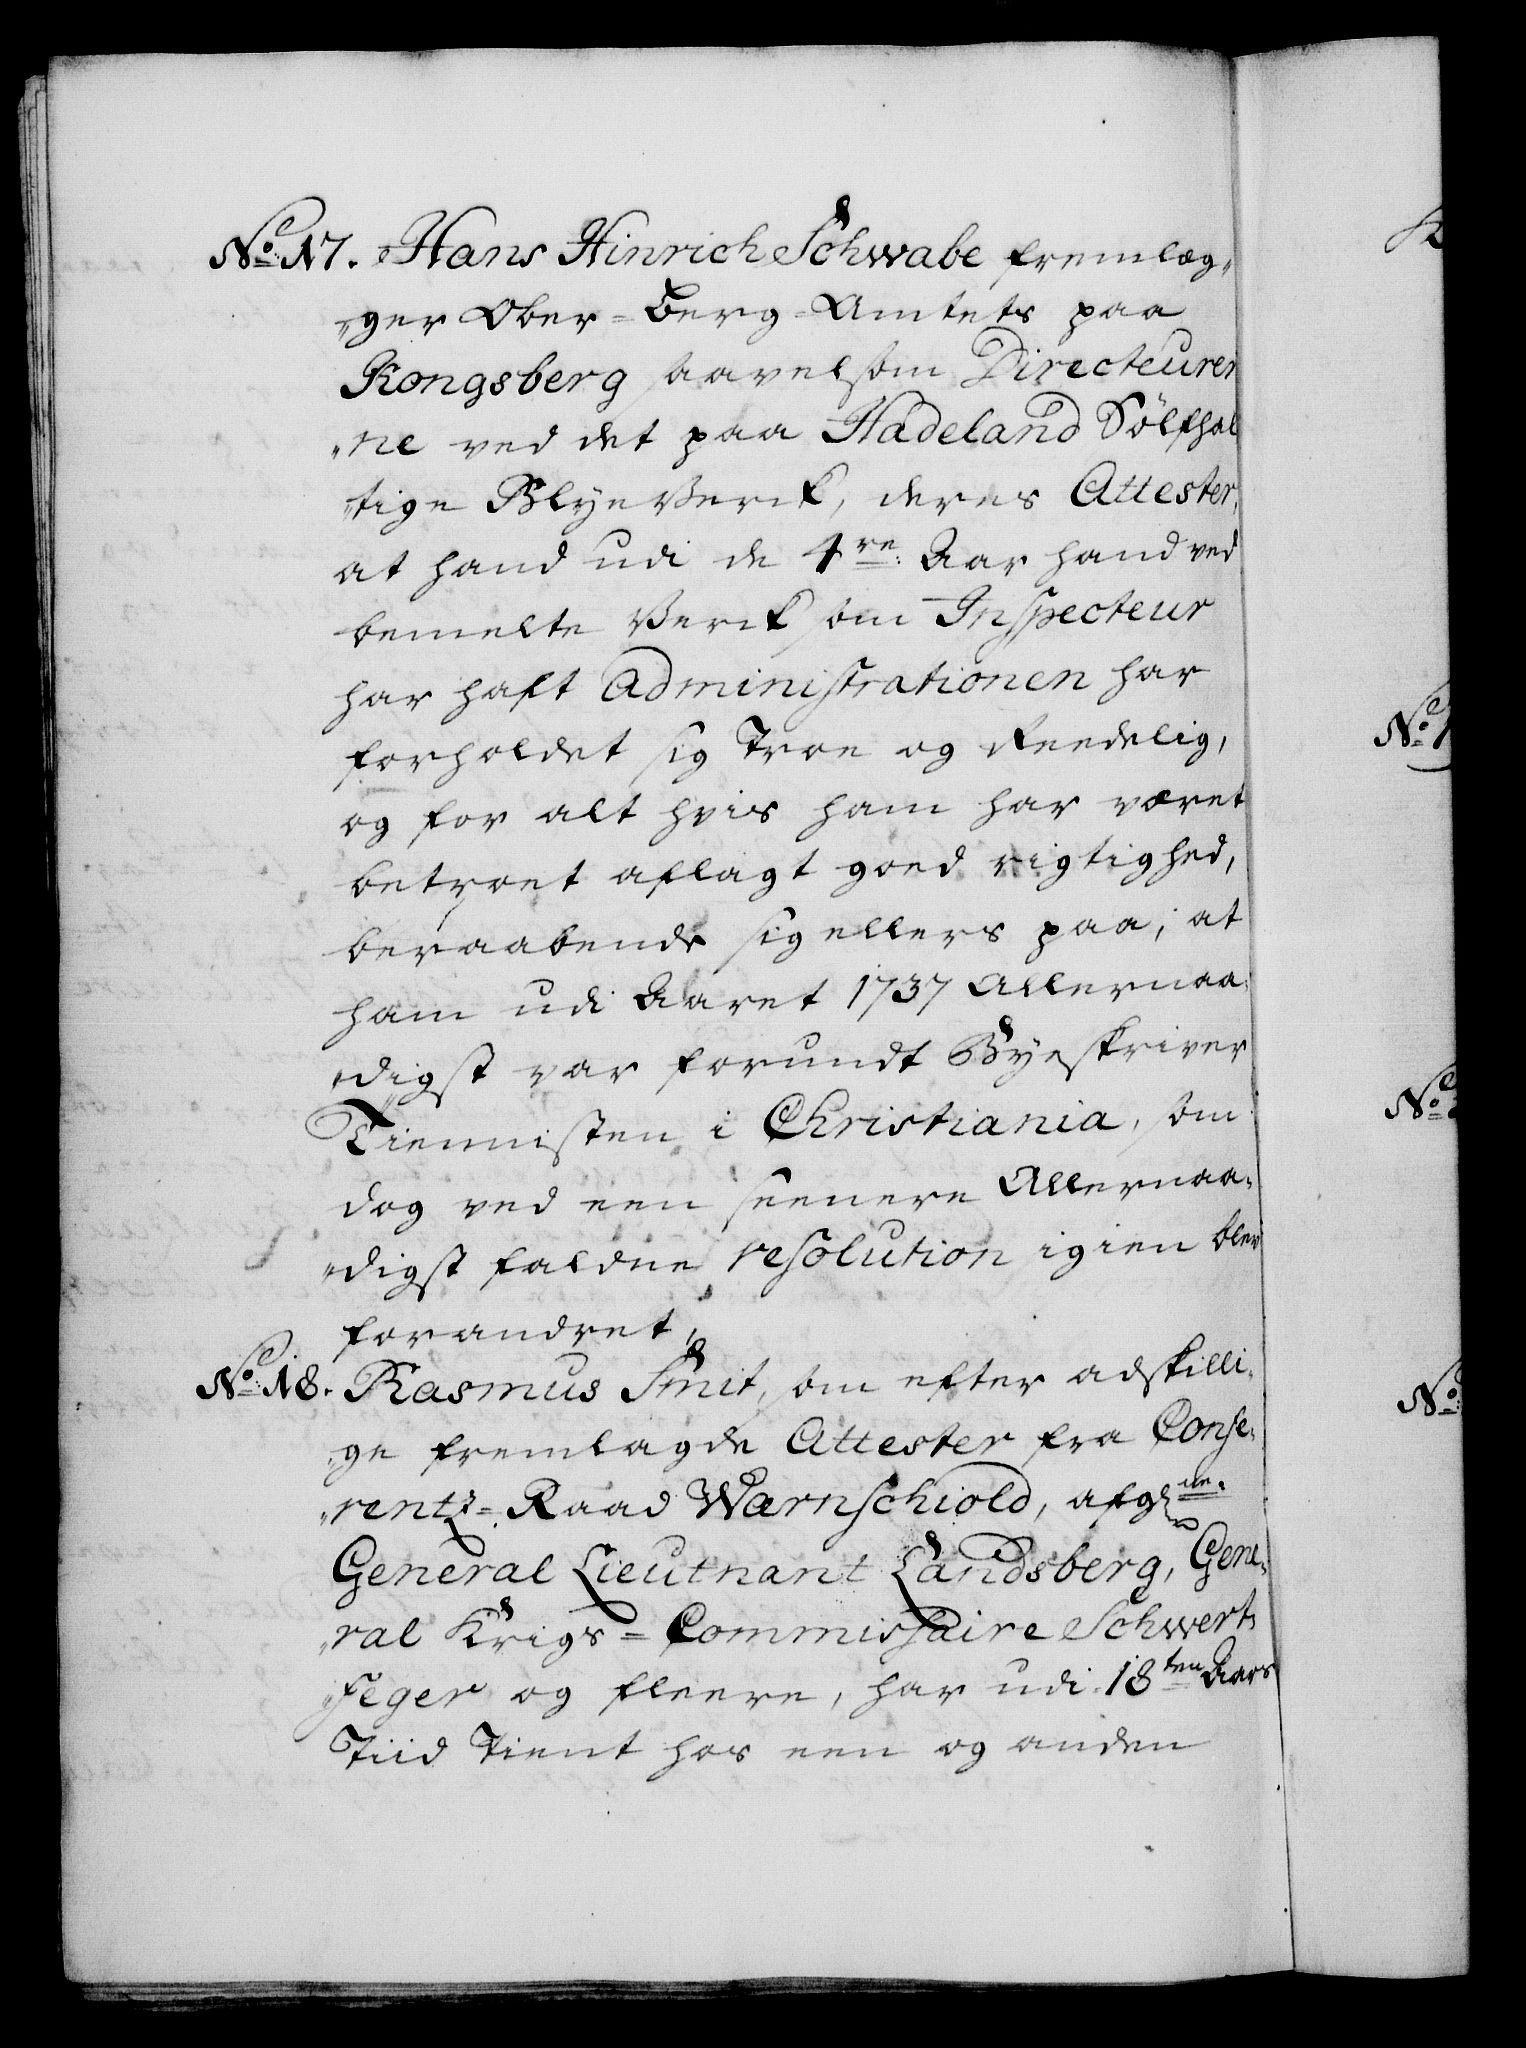 No: 17. Hans Hinrich Schwabe fremlæg„
„ger Ober-Berg-Amtets paa
Kongsberg saavelsom Directeurer
„ne ved det paa Hadeland Sölfhol
„tige Blye Verck, deres Attester,
at hand udi de 4re: Aar hand ved
bemelte Verck som Inspecteur
har haft Administrationen har
forholdet sig Troe og Reedelig,
og for alt hvis ham har været
betroet aflagt goed rigtighed,
beraabende sig ellers paa, at
ham udi Aaret 1737 Allernaa„
„digst var forundt Byeskriver
Tiennisten i Christiania, som
dog ved een seenere Allernaa„
„digst faldne resolution igien blev
forandret,
No: 18. Rasmus Smit, som efter adskilli„
„ge fremlagde Attester fra Confe„
„rentz-Raad Wærnschiold, afgne:
General Lieutnant Landsberg, Gene„
„ral Krigs-Commissaire Schwert„
„feger og fleere, har udi 18ten Aars
Tiid Tient hos een og anden
No: 1
No:
No: